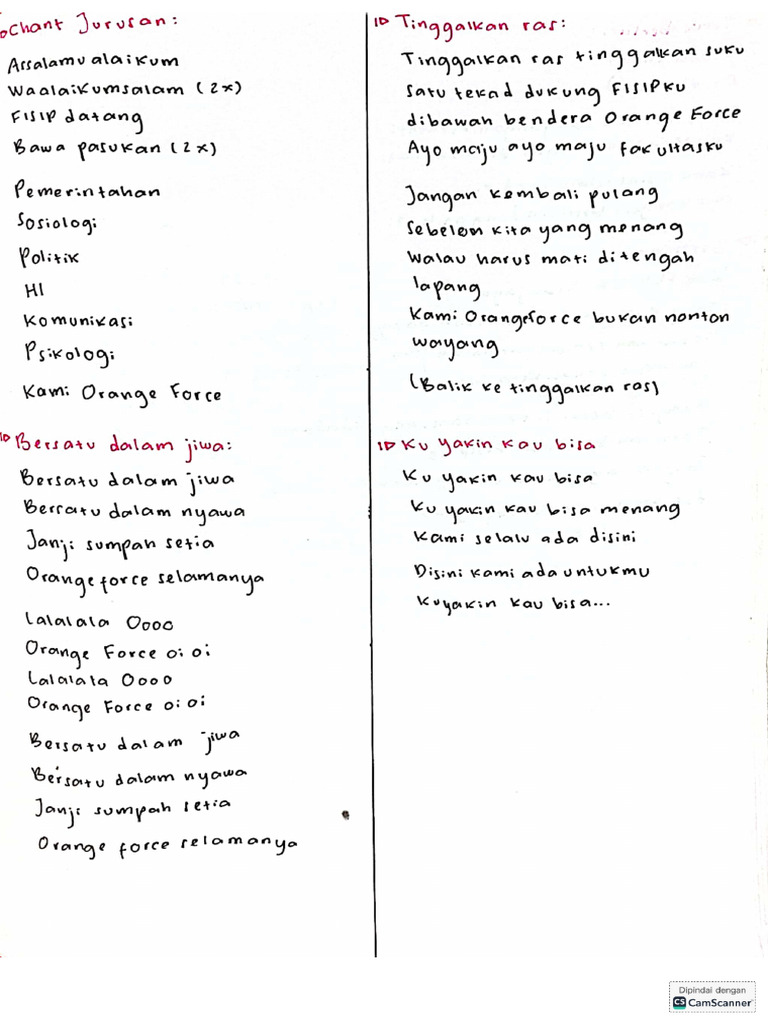 Chant Jurusan:
Assalamualaikum
Waalaikumsalam (2x)
FISIP datang
Bawa pasukan (2x)
Pemerintahan
Sosiologi
Politik
HI
Komunikasi
Psikologi
Kami Orange Force
Bersatu dalam jiwa:
Bersatu dalam jiwa
Bersatu dalam nyawa
Janji sumpah setia
Orangeforce selamanya
Lalalala Oooo
Orange Force oi oi
Lalalala Oooo
Orange Force oi oi
Bersatu dalam jiwa
Bersatu dalam nyawa
Janji sumpah setia
Orange force selamanya
Tinggalkan ras:
Tinggalkan ras tinggalkan suku
Satu tekad dukung FISIPKU
dibawah bendera Orange Force
Ayo maju ayo maju fakultasku
Jangan kembali pulang
Sebelom kita yang menang
Walau harus mati ditengah
lapang
Kami Orangeforce bukan nonton
wayang
(Balik ke tinggalkan ras)
Ku yakin kau bisa
Ku yakin kau bisa
Ku yakin kau bisa menang
Kami selalu ada disini
Disini kami ada untukmu
Kuyakin kau bisa...
Dipindai dengan
CS CamScanner